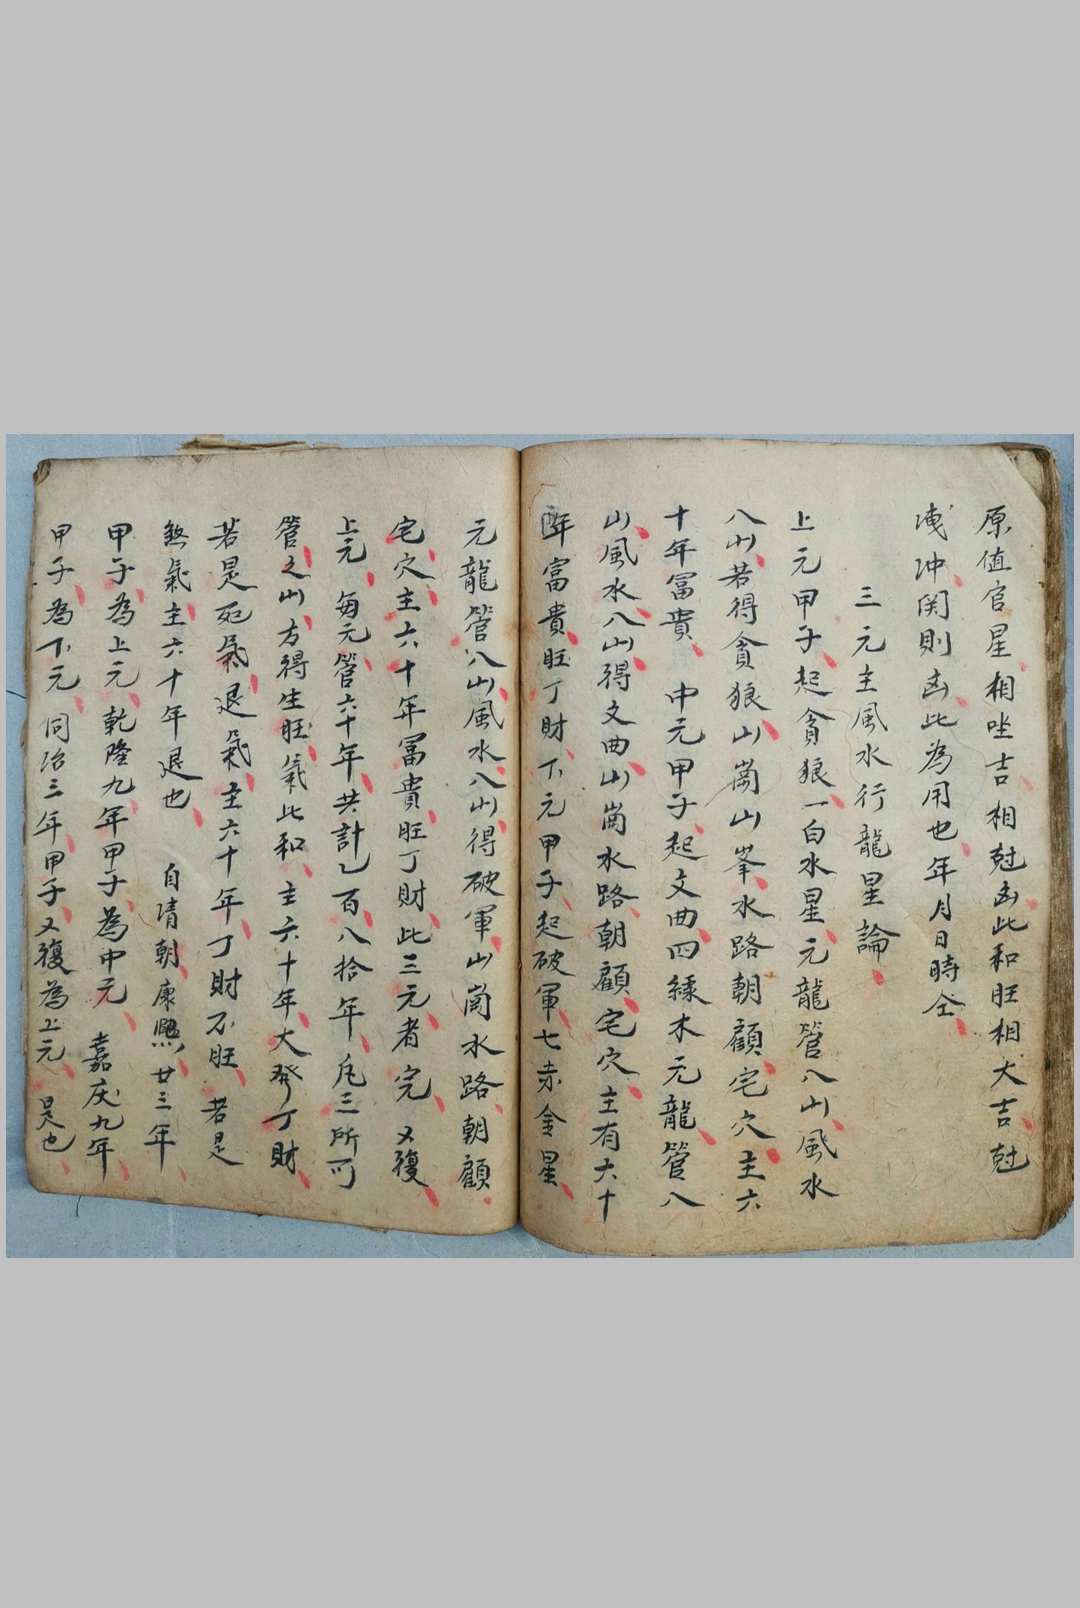 原值官星相坐吉相尅凶比和旺相大吉尅
洩冲関則凶此為用也年月日時仝
三元主風水行龍星論
上元甲子起貪狼一白水星元龍管八山風水
八山若得貪狼山崗山峯水路朝顧宅穴主六
十年富貴 中元甲子起文曲四綠木元龍管八
山風水八山得文曲山崗水路朝顧宅穴主有六十
年富貴旺丁財下元甲子起破軍七赤金星
元龍管八山風水八山得破軍山崗水路朝顧
宅穴主六十年富貴旺丁財此三元者完又復
上元每元管六十年共計乙百八拾年凡三所可
管之山方得生旺氣比和主六十年大發丁財
若是死氣退氣主六十年丁財不旺若是
煞氣主六十年退也 自清朝康熙廿三年
甲子為上元乾隆九年甲子為中元嘉庆九年
甲子為下元同治三年甲子又復為上元是也